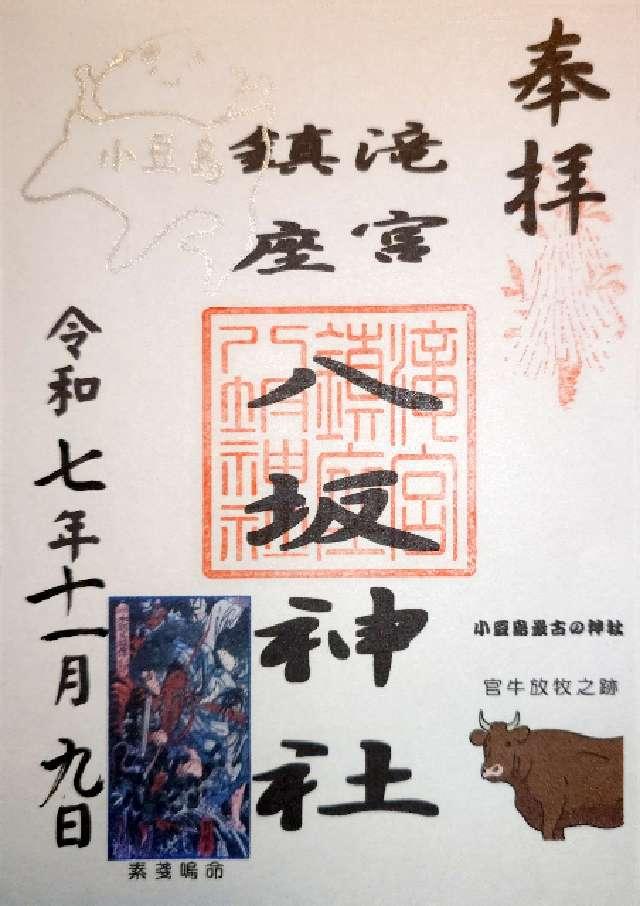 奉拝
滝宮
鎮座
小豆島
八坂神社
滝宮
鎮座
八坂神社
小豆島最古の神社
官牛放牧之跡
令和七年十一月九日
素戔嗚命